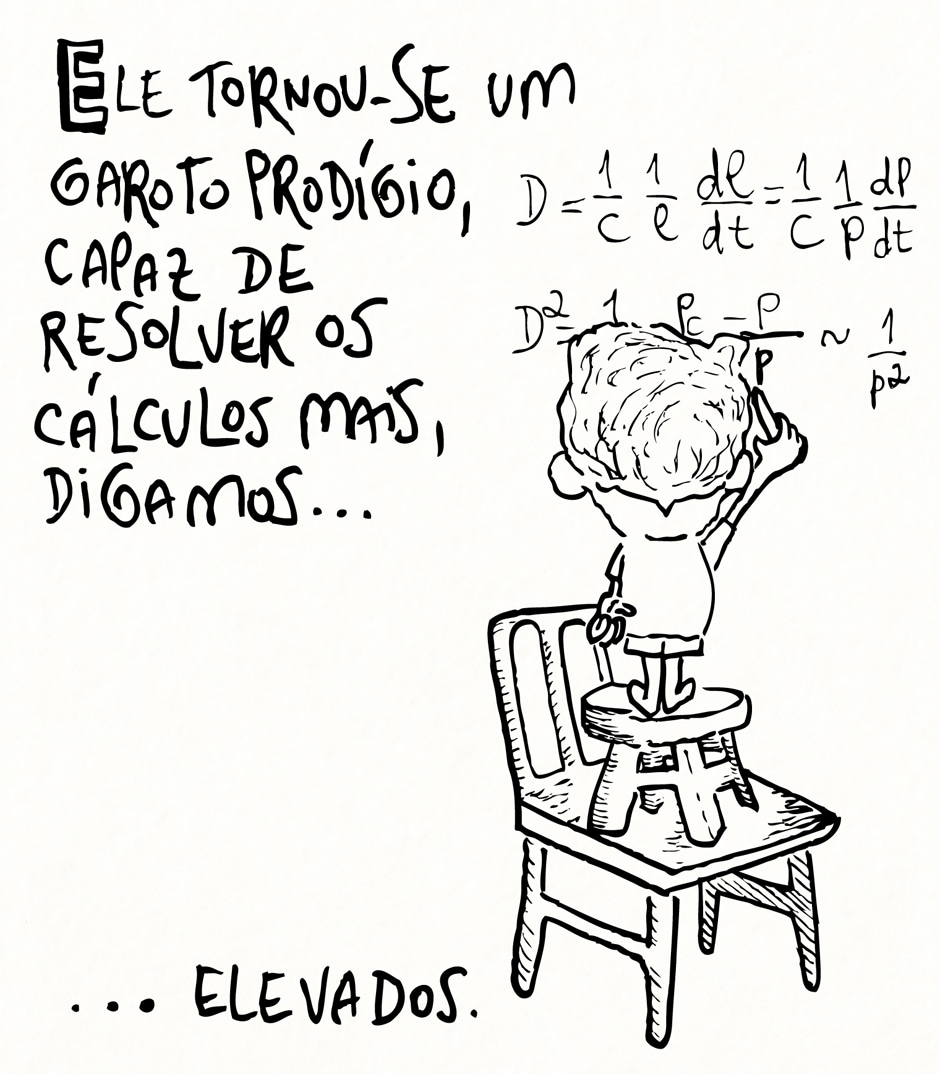 ELE TORNOU-SE UM
GAROTO PRODÍGIO,
CAPAZ DE
RESOLVER OS
CÁLCULOS MAIS,
DIGAMOS...
D = 1/C 1/ℓ dℓ/dt = 1/C 1/P dP/dt
D² = 1 Pc - P / P ~ 1/P²
... ELEVADOS.